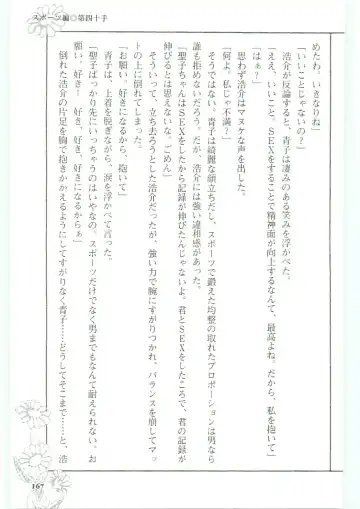 スポーツ編◎第四十手
めたわ、いきなりね」
「いいことじゃないの？」
浩介が反論すると、青子は凄みのある笑みを浮かべた。
「ええ、いいこと。ＳＥＸをすることで精神面が向上するなんて、最高よね。だから、私を抱いて」
「はぁ？」
思わず浩介はマヌケな声を出した。
「何よ、私じゃ不満？」
そうではない。青子は綺麗な顔立ちだし、スポーツで鍛えた均整の取れたプロポーションは男なら
誰も拒めないだろう。だが、浩介には強い違和感があった。
「聖子ちゃんはＳＥＸをしたから記録が伸びたんじゃないよ。君とＳＥＸをしたところで、君の記録が
伸びるとは思えないな。ごめん」
そういって、立ち去ろうとした浩介だったが、強い力で腕にすがりつかれ、バランスを崩してマッ
トの上に倒れてしまった。
「お願い、好きになるから、抱いて」
青子は、上着を脱ぎながら、涙を浮かべて言った。
「聖子ばっかり先にいっちゃうのはいやなの、スポーツだけでなく男までもなんて耐えられない。お
願い、好き！　好き、好き、好きになるからぁ」
倒れた浩介の片足を胸で抱きかかえるようにしてすがりなく青子……どうしてそこまで……と、浩
167